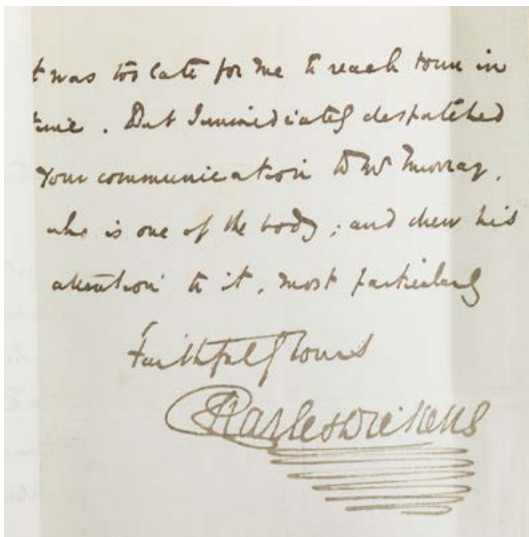 t was too late for me to reach town in
time. But I immediately despatched
your communication to Mr Murray,
who is one of the body; and drew his
attention to it, most particularly
Faithfully Yours
Charles Dickens